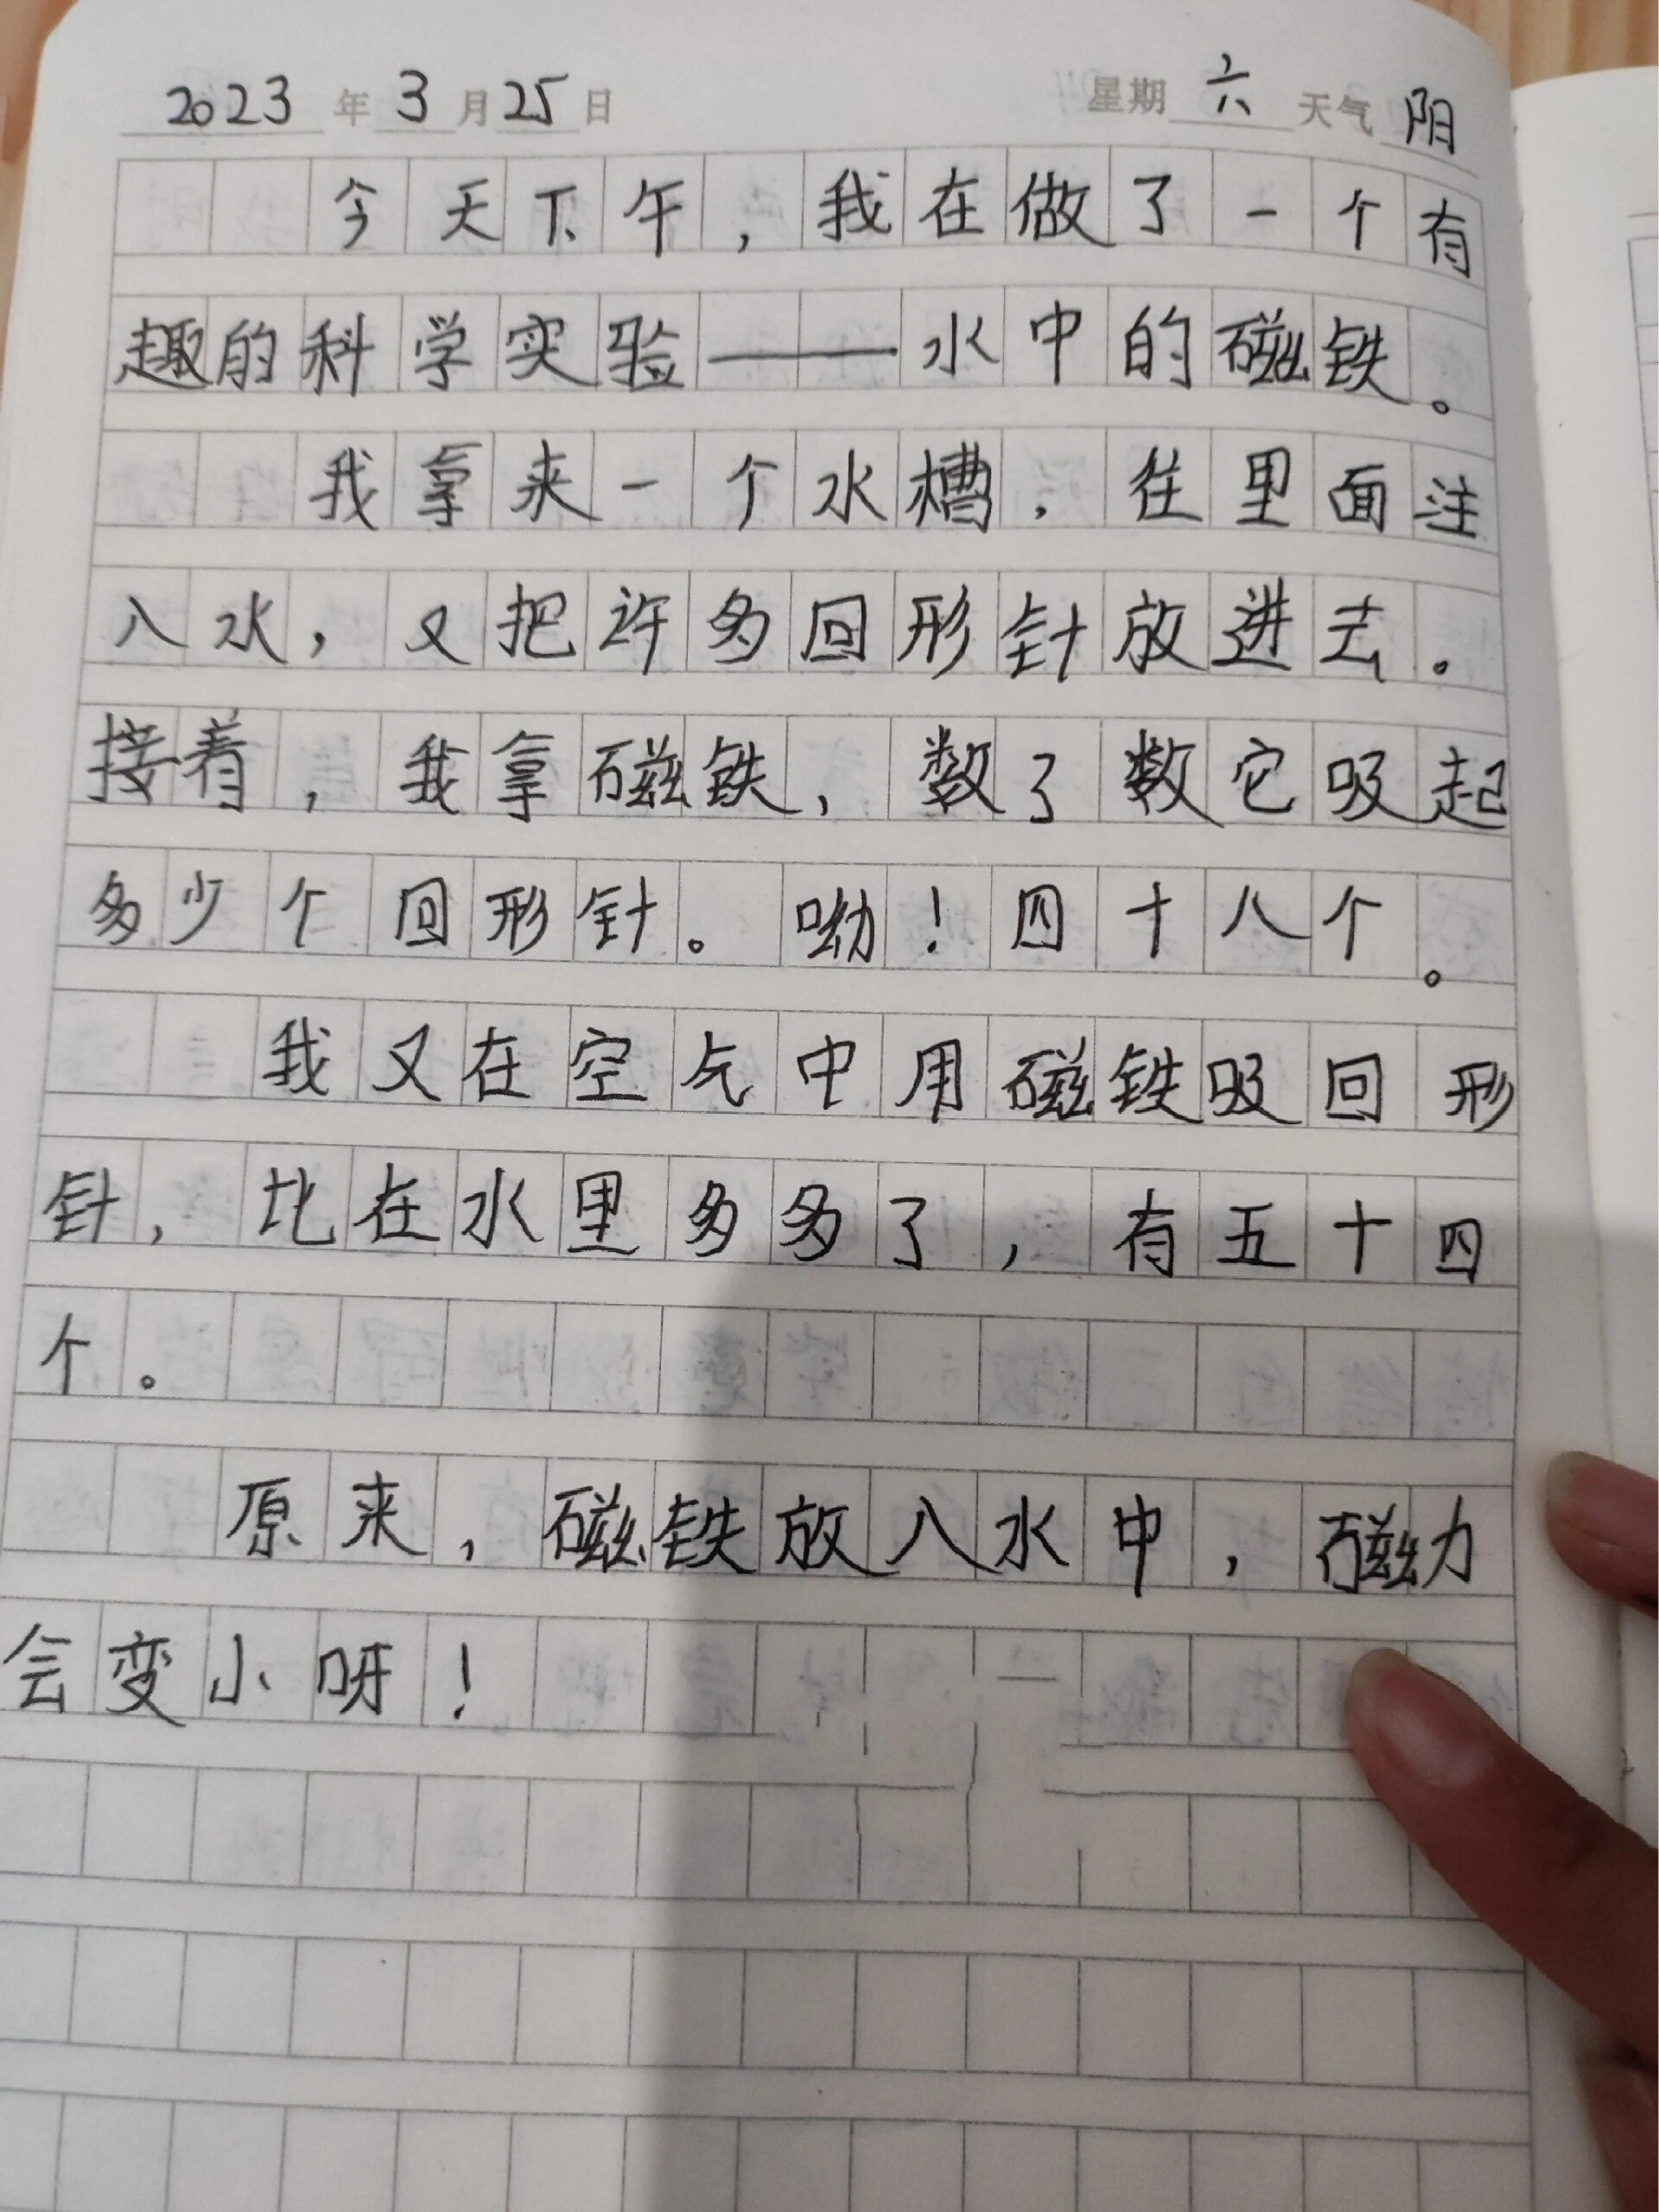 2023年3月25日 星期六 天气阳
今天下午，我在做了一个有
趣的科学实验——水中的磁铁。
我拿来一个水槽，往里面注
入水，又把许多回形针放进去。
接着，我拿磁铁，数了数它吸起
多少个回形针。呦！四十八个。
我又在空气中用磁铁吸回形
针，比在水里多多了，有五十四
个。
原来，磁铁放入水中，磁力
会变小呀！